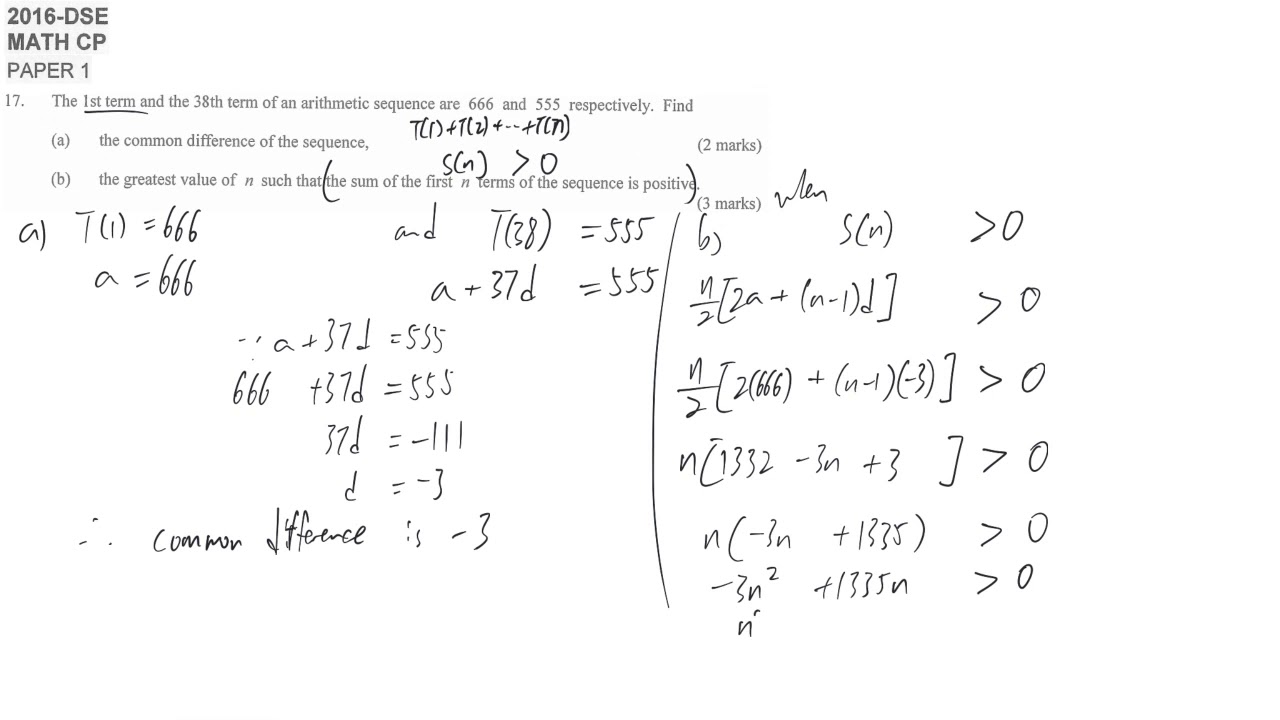 2016-DSE
MATH CP
PAPER 1
17. The 1st term and the 38th term of an arithmetic sequence are 666 and 555 respectively. Find
T(1)+T(2)+...+T(n)
(a) the common difference of the sequence, (2 marks)
S(n) > 0
(b) the greatest value of n such that (the sum of the first n terms of the sequence is positive). (3 marks)
a) T(1) = 666 and T(38) = 555
a = 666 a + 37d = 555
∵ a + 37d = 555
666 + 37d = 555
37d = -111
d = -3
∴ common difference is -3
when
b) S(n) > 0
n/2 [2a + (n-1)d] > 0
n/2 [2(666) + (n-1)(-3)] > 0
n[1332 - 3n + 3] > 0
n(-3n + 1335) > 0
-3n² + 1335n > 0
n